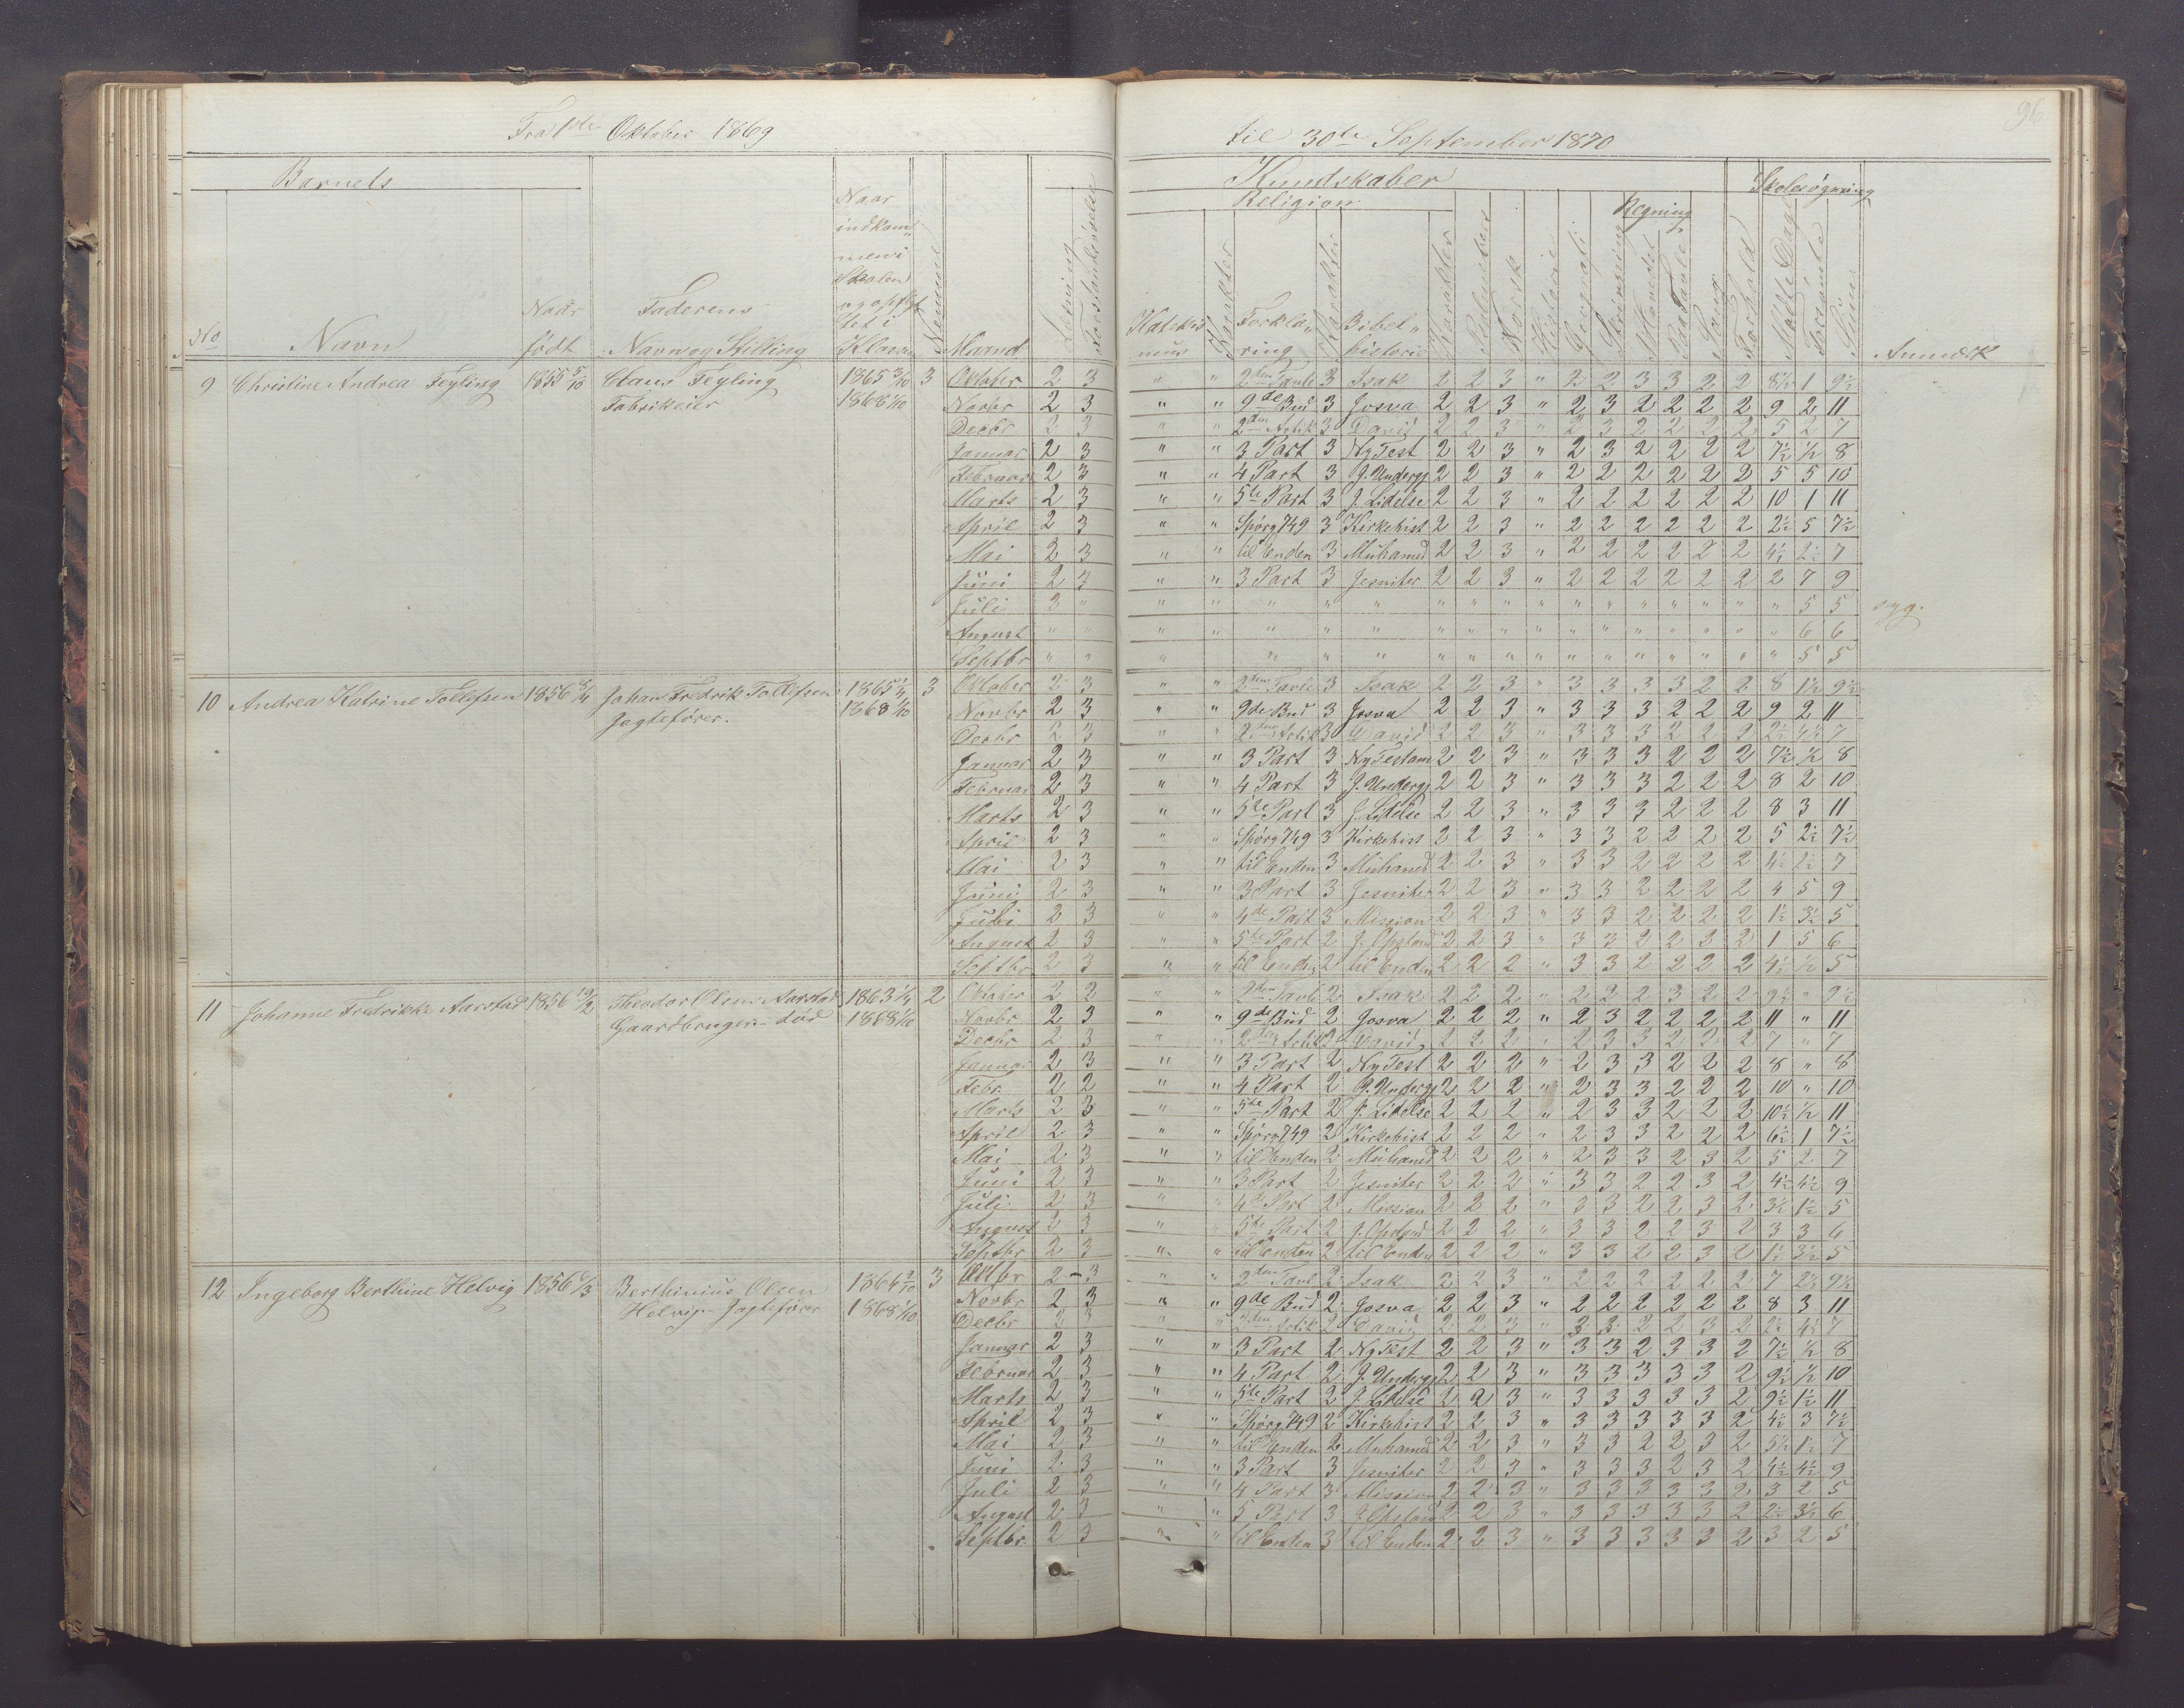 Fra 1ste Oktober 1869
til 30te September 1870
96
Barnets
Kundskaber
Skolesøgning
Religion
Regning
No Navn Naar født Faderens Navn og Stilling Naar indkommen i Skolen og opflyttet i Klassen Nemme Maaned Læsning Forstandsøvelse
Katekismus Karakter Forklaring Karakter Bibelhistorie Karakter Norsk Historie Geografi Skrivning Paa Tavle Sang Forhold Mødte Dage Forsømte Anmærk
9 Christine Andrea Feyling 1855 5/10 Claus Feyling 1865 3/10 3 Oktober 2 3 " " 2den Tavle 3 Isak 2 2 3 " 2 2 3 3 2 2 8½ 1 9½
Fabrikeier 1868 1/10 Novbr 2 3 " " 9de Bud 3 Josva 2 2 3 " 2 3 2 2 2 2 9 2 11
Decbr 2 3 " " 2den Artik 3 David 2 2 3 " 2 3 2 2 2 2 5 2 7
Januar 2 3 " " 3 Part 3 Ny Test 2 2 3 " 2 3 2 2 2 2 7½ ½ 8
Februar 2 3 " " 4 Part 3 J. Underg 2 2 3 " 2 2 2 2 2 2 5 5 10
Marts 2 3 " " 5te Part 3 J. Lidelse 2 2 3 " 2 2 2 2 2 2 10 1 11
April 2 3 " " Spørg 749 3 Kirkehist 2 2 3 " 2 2 2 2 2 2 2½ 5 7½
Mai 2 3 " " til Enden 3 Muhamed 2 2 3 " 2 2 2 2 2 2 4½ 2½ 7
Juni 2 3 " " 3 Part 3 Jesuiter 2 2 3 " 2 2 2 2 2 2 2 7 9
Juli 2 " " " " " " " " " " " " " " " " " 5 5 syg.
August " " " " " " " " " " " " " " " " " " 6 6
Septbr " " " " " " " " " " " " " " " " " 5 5
10 Andrea Katrine Tollefsen 1856 8/4 Johan Fredrik Tollefsen 1865 1/4 3 Oktober 2 3 " " 2den Tavle 3 Isak 2 2 3 " 3 3 3 3 2 2 8 1½ 9½
Jagtefører. 1868 1/10 Novbr 2 3 " " 9de Bud 3 Josva 2 2 3 " 3 3 3 2 2 2 9 2 11
Decbr 2 3 " " 2den Artik 3 David 2 2 3 " 3 3 3 2 2 2 2½ 4½ 7
Januar 2 3 " " 3 Part 3 Ny Testam 2 2 3 " 3 3 3 2 2 2 7½ ½ 8
Februar 2 3 " " 4 Part 3 J. Underg 2 2 3 " 3 3 3 2 2 2 8 2 10
Marts 2 3 " " 5te Part 3 J. Lidelse 2 2 3 " 3 3 3 2 2 2 8 3 11
April 2 3 " " Spørg 749 3 Kirkehist 2 2 3 " 3 3 2 2 2 2 5 2½ 7½
Mai 2 3 " " til Enden 3 Muhamed 2 2 3 " 3 3 2 2 2 2 4½ 2½ 7
Juni 2 3 " " 3 Part 3 Jesuiter 2 2 3 " 3 3 2 2 2 2 4 5 9
Juli 2 3 " " 4de Part 3 Mission 2 2 3 " 3 3 2 2 2 2 1½ 3½ 5
August 2 3 " " 5te Part 2 J. Opstand 2 2 3 " 3 3 2 2 2 2 1 5 6
Septbr 2 3 " " til Enden 2 til Enden 2 2 2 " 3 3 2 2 2 2 4½ ½ 5
11 Johanne Fredrikke Aarstad 1856 19/2 Theodor Olsen Aarstad 1863 1/4 2 Oktober 2 2 " " 2den Tavle 2 Isak 2 2 2 " 2 2 2 3 2 2 9½ " 9½
Gaardbruger - død 1868 1/10 Novbr 2 3 " " 9de Bud 2 Josva 2 2 2 " 2 3 2 2 2 2 11 " 11
Decbr 2 3 " " 2den Artik 2 David 2 2 2 " 2 3 3 2 2 2 7 " 7
Januar 2 3 " " 3 Part 2 Ny Test 2 2 2 " 2 3 3 2 2 2 8 " 8
Febr. 2 2 " " 4 Part 2 J. Underg 2 2 2 " 2 3 3 2 2 2 10 " 10
Marts 2 3 " " 5te Part 2 J. Lidelse 2 2 2 " 2 3 3 2 2 2 10½ ½ 11
April 2 3 " " Spørg 749 2 Kirkehist 2 2 2 " 2 3 3 2 2 2 6½ 1 7½
Mai 2 3 " " til Enden 2 Muhamed 2 2 2 " 2 3 3 2 3 2 5 2 7
Juni 2 3 " " 3 Part 2 Jesuiter 2 2 2 " 3 3 2 2 3 2 4½ 4½ 9
Juli 2 3 " " 4de Part 2 Mission 2 2 2 " 3 3 2 2 3 2 3½ 1½ 5
August 2 3 " " 5te Part 2 J. Opstand 2 2 2 " 3 3 2 2 3 2 3 3 6
Septbr 2 3 " " til Enden 2 til Enden 2 2 2 " 3 3 2 2 3 2 1½ 3½ 5
12 Ingeborg Berthine Helvig 1856 6/3 Berthinius Olsen 1864 2/10 3 Oktbr 2 3 " " 2den Tavl 2 Isak 2 2 3 " 2 2 2 2 2 2 7 2½ 9½
Helvig - Jagtefører 1868 1/10 Novbr 2 3 " " 9de Bud 2 Josva 2 2 3 " 2 2 2 2 2 2 8 3 11
Decbr 2 3 " " 2den Artik 2 David 2 2 3 " 3 3 2 2 3 2 2½ 4½ 7
Januar 2 3 " " 3 Part 2 Ny Test 2 2 3 " 3 3 2 3 3 2 7½ ½ 8
Februar 2 3 " " 4 Part 2 J. Underg 2 2 3 " 3 3 3 3 3 2 9½ ½ 10
Marts 2 3 " " 5te Part 2 J. Lidelse 2 2 3 " 3 3 3 3 3 2 9½ 1½ 11
April 2 3 " " Spørg 749 2 Kirkehist 2 2 3 " 3 3 3 3 3 2 4½ 3 7½
Mai 2 3 " " til Enden 2 Muhamed 2 2 3 " 3 3 2 2 3 2 5½ 1½ 7
Juni 2 3 " " 3 Part 3 Jesuiter 2 2 3 " 3 3 3 2 3 2 4½ 4½ 9
Juli 2 3 " " 4 Part 3 Mission 2 2 3 " 3 3 3 3 3 2 3 2 5
August 2 3 " " 5 Part 3 J. Opstand 2 2 3 " 3 3 3 3 3 2 2½ 3½ 6
Septbr 2 3 " " til Enden 3 til Enden 2 2 3 " 3 3 3 3 3 2 3 2 5